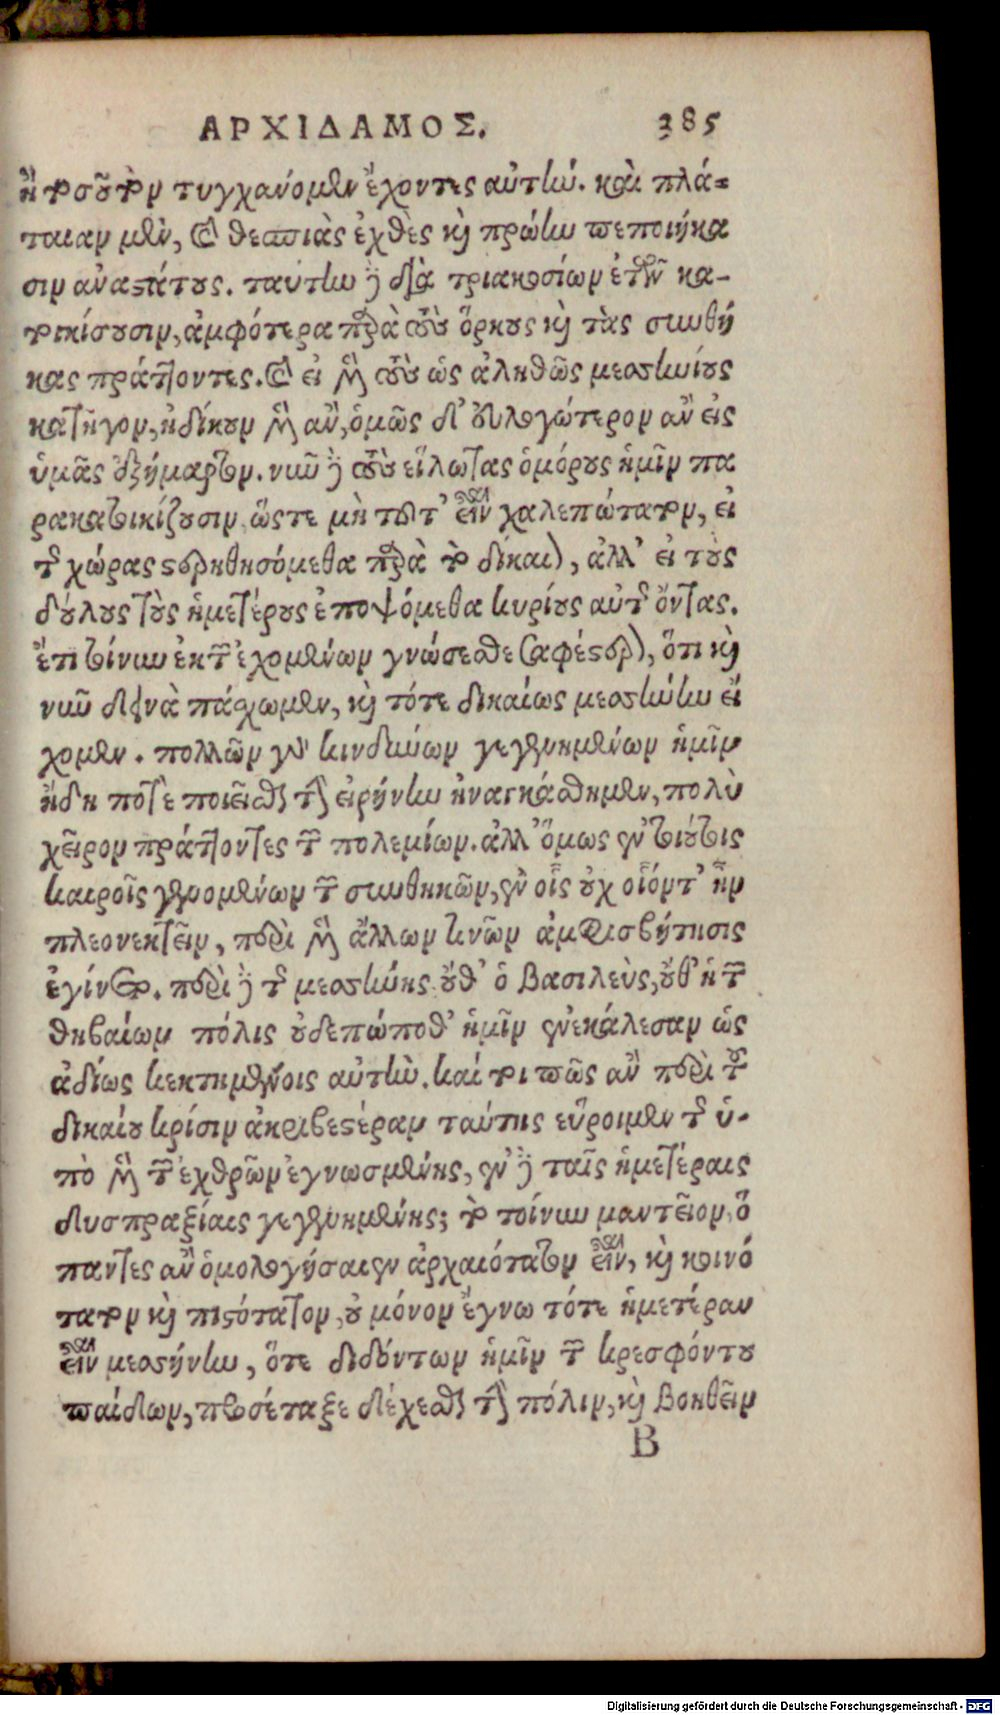 ΑΡΧΙΔΑΜΟΣ. 385
ἢ τοσοῦτον τυγχάνομεν ἔχοντες αὐτήν. καὶ πλά-
ταιαν μὲν, καὶ θεσπιὰς ἐχθὲς καὶ πρώην πεποιήκα
σιν ἀναστάτους. ταύτην δὲ διὰ τριακοσίων ἐτῶν κα-
τοικίσουσιν, ἀμφότερα παρὰ τοὺς ὅρκους καὶ τὰς συνθή
κας πράττοντες. καὶ εἰ μὲν τοὺς ὡς ἀληθῶς μεσσηνίους
κατῆγον, ἠδίκουν μὲν ἂν, ὁμῶς δ' εὐλογώτερον ἂν εἰς
ὑμᾶς ἐξήμαρτον. νῦν δὲ τοὺς εἵλωτας ὁμόρους ἡμῖν πα
ρακατοικίζουσιν, ὥστε μὴ τοῦτ' εἶναι χαλεπώτατον, εἰ
τῆς χώρας στερηθησόμεθα παρὰ τὸ δίκαιον, ἀλλ' εἰ τοὺς
δούλους τοὺς ἡμετέρους ἐποψόμεθα κυρίους αὐτῆς ὄντας.
ἔτι τοίνυν ἐκ τῶν ἐχομένων γνώσεσθε σαφέστερον, ὅτι καὶ
νῦν δεινὰ πάσχωμεν, καὶ τότε δικαίως μεσσήνην εἴ
χομεν. πολλῶν γὰρ κινδύνων γεγενημένων ἡμῖν
ἤδη ποτὲ ποιεῖσθαι τὴν εἰρήνην ἠναγκάσθημεν, πολὺ
χεῖρον πράττοντες τῶν πολεμίων. ἀλλ' ὅμως ἐν τούτοις
καιροῖς γενομένων τῶν συνθηκῶν, ἐν οἷς οὐχ οἷόντ' ἦν
πλεονεκτεῖν, περὶ μὲν ἄλλων τινῶν ἀμφισβήτησις
ἐγίνετο. περὶ δὲ τῆς μεσσήνης οὔθ' ὁ βασιλεὺς, οὔθ' ἡ τῶν
θηβαίων πόλις οὐδεπώποθ' ἡμῖν ἐνεκάλεσαν ὡς
ἀδίκως κεκτημένοις αὐτήν. καί τοι πῶς ἂν περὶ τοῦ
δικαίου κρίσιν ἀκριβεστέραν ταύτης εὕροιμεν τῆς ὑ-
πὸ μὲν τῶν ἐχθρῶν ἐγνωσμένης, ἐν δὲ ταῖς ἡμετέραις
δυσπραξίαις γεγενημένης; τὸ τοίνυν μαντεῖον, ὃ
πάντες ἂν ὁμολογήσαιεν ἀρχαιότατον εἶναι, καὶ κοινό
τατον καὶ πιστότατον, οὐ μόνον ἔγνω τότε ἡμετέραν
εἶναι μεσσήνην, ὅτε διδόντων ἡμῖν τῶν κρεσφόντου
παίδων, προσέταξε δέχεσθαι τὴν πόλιν, καὶ βοηθεῖν
B
Digitalisierung gefördert durch die Deutsche Forschungsgemeinschaft - DFG